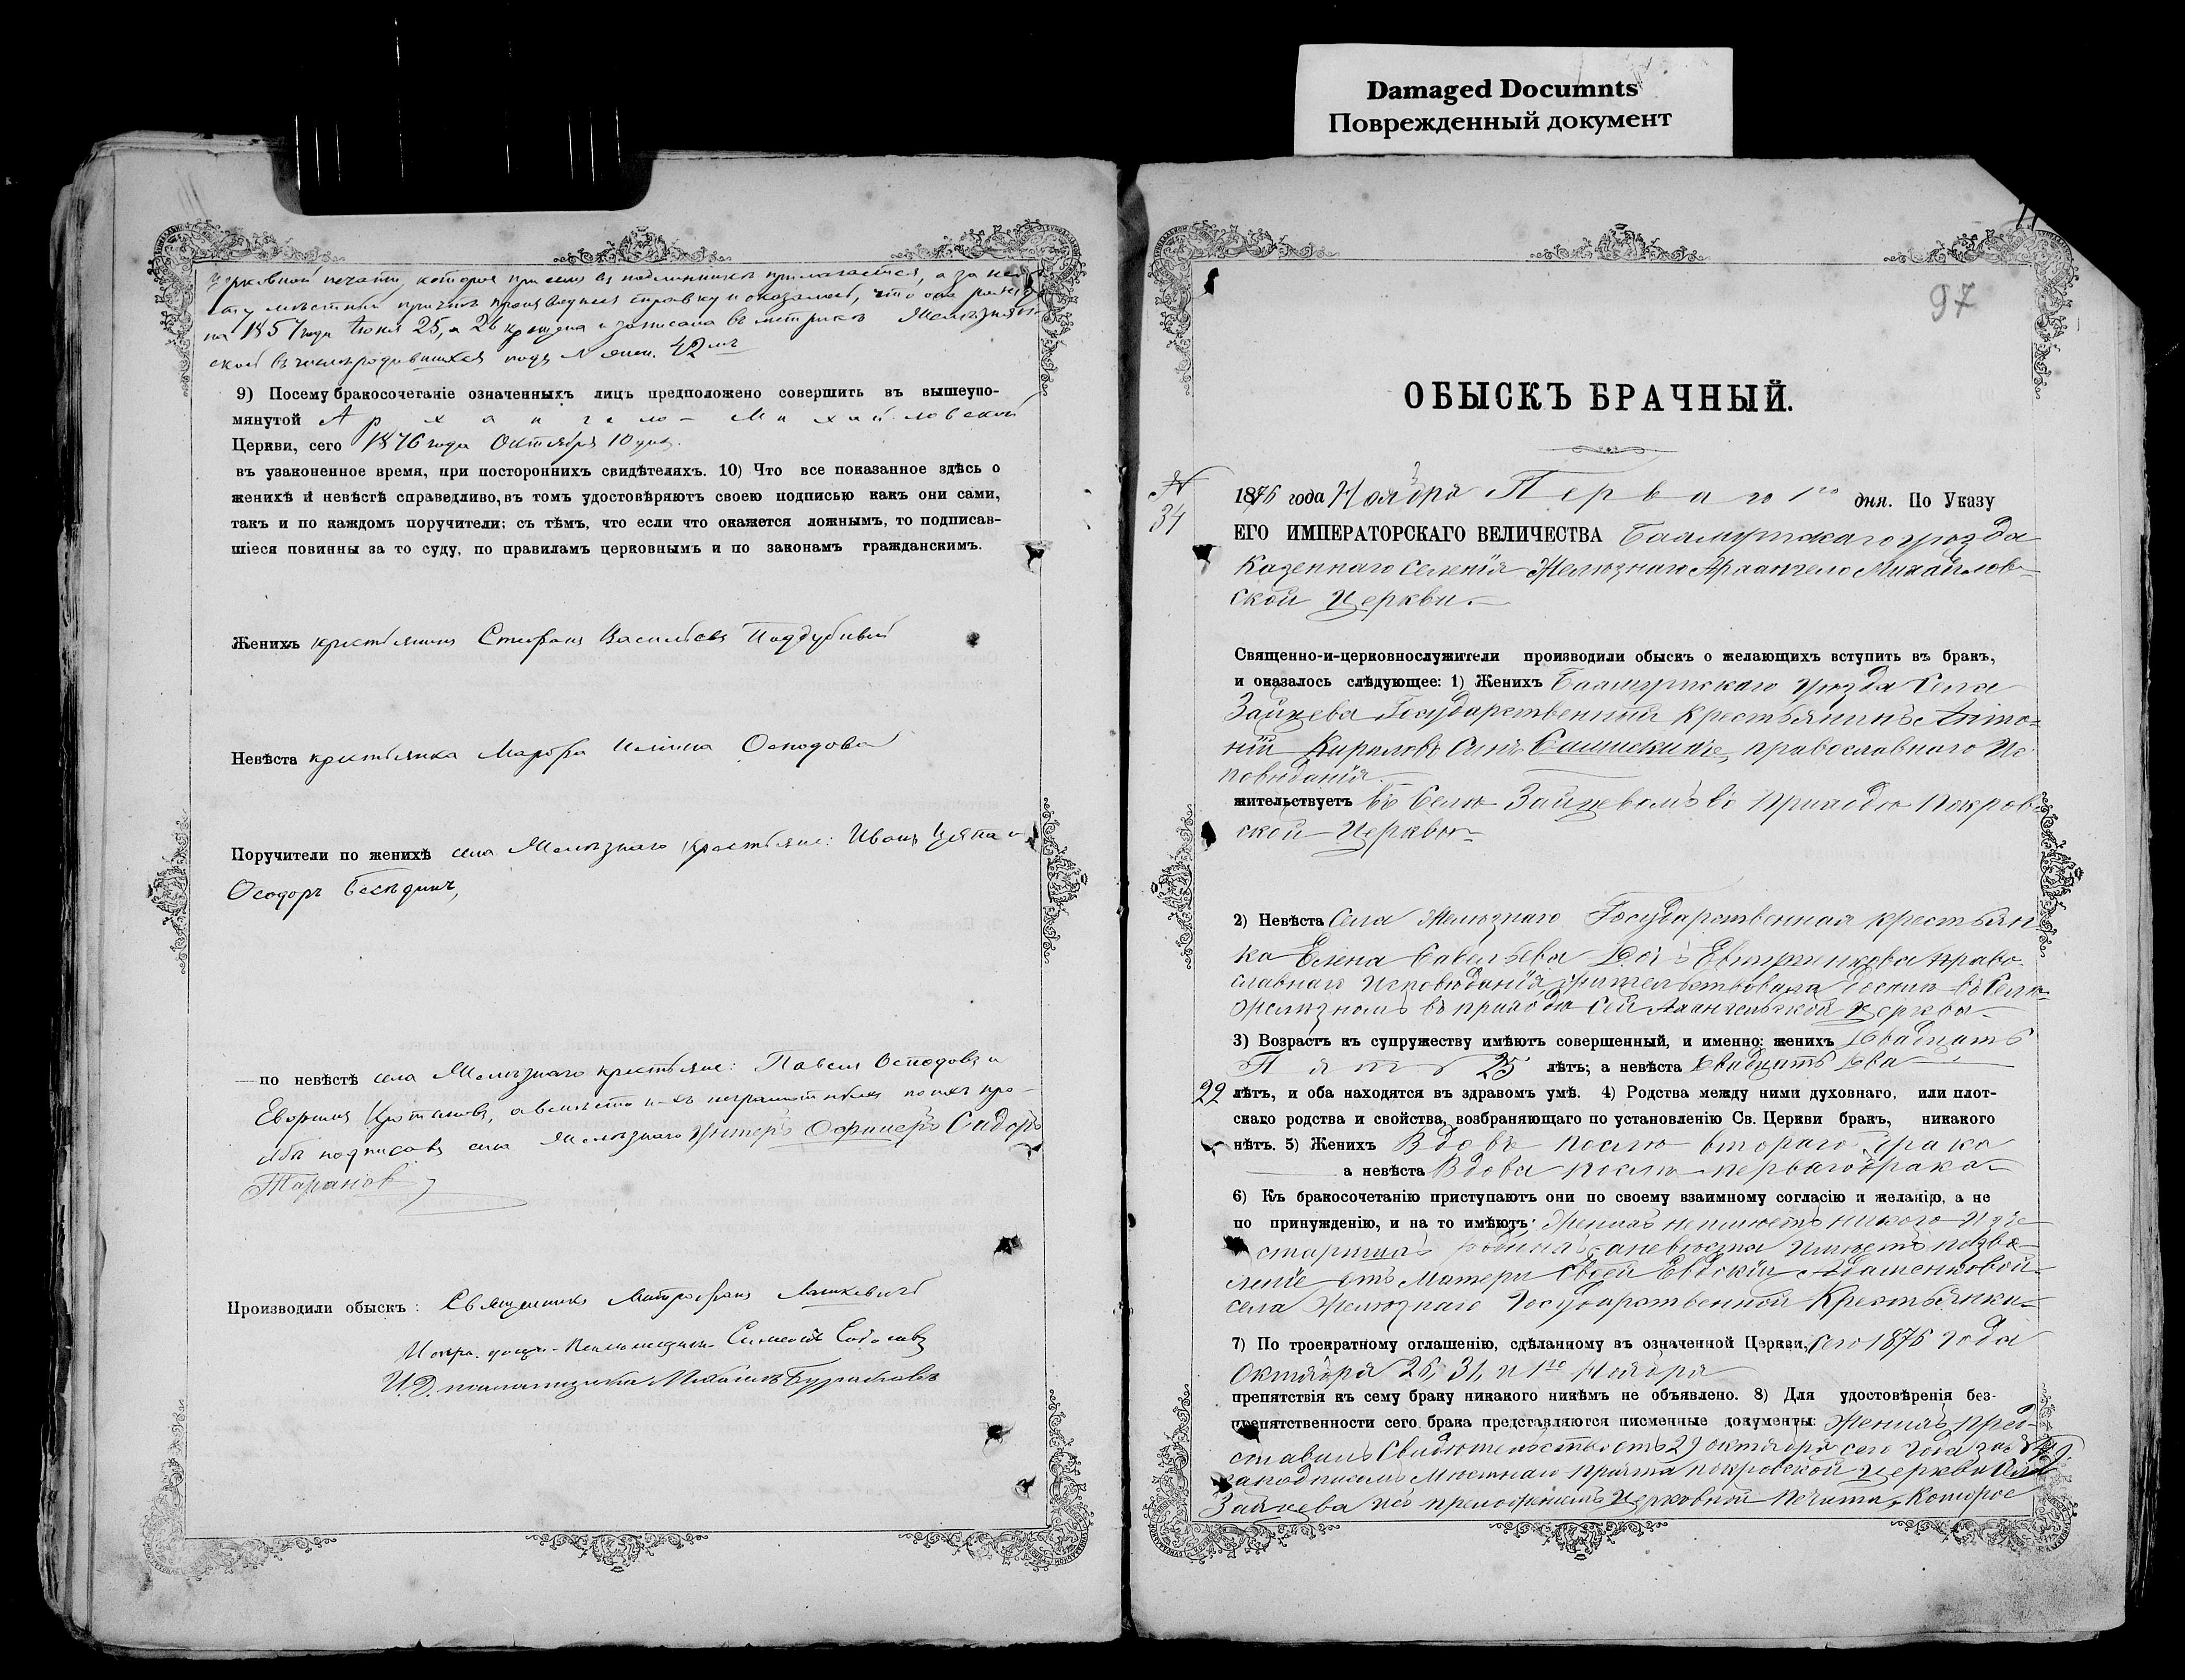 Damaged Documnts
Поврежденный документ
церковной печати, которое при семъ въ подлинникѣ прилагается, а за не-
на 1857 года Іюня 25, а 26 крещена и записана въ метрикѣ Желѣзнян
ской въ числѣ родившихся подъ № женс. 42мъ
9) Посему бракосочетаніе означенныхъ лицъ предположено совершить въ вышеупо-
мянутой Архангело-Михайловской
Церкви, сего 1876 года Октября 10 дня.
въ узаконенное время, при постороннихъ свидѣтеляхъ. 10) Что все показанное здѣсь о
женихѣ и невѣстѣ справедливо, въ томъ удостовѣряютъ своею подписью какъ они сами,
такъ и по каждомъ поручители; съ тѣмъ, что если что окажется ложнымъ, то подписав-
шіеся повинны за то суду, по правиламъ церковнымъ и по законамъ гражданскимъ.
Женихъ крестьянинъ Стефанъ Васильевъ Поддубный
Невѣста крестьянка Марфа Ильина Осподова
Поручители по женихѣ села Желѣзнаго крестьяне: Иванъ Цяпа и
Ѳеодоръ Бесѣдинъ,
— по невѣстѣ села Желѣзнаго крестьяне: Павелъ Осподовъ и
подписавъ села Желѣзнаго Унтеръ Офицеръ Сидоръ
Тарановъ
Производили обыскъ: Священникъ Митрофанъ Лашкевичъ
И. Д. псаломщика
97
ОБЫСКЪ БРАЧНЫЙ.
№
34
1876 года Ноября Перваго 1го дня. По Указу
ЕГО ИМПЕРАТОРСКАГО ВЕЛИЧЕСТВА Бахмутскаго уѣзда
Казеннаго Селенія Желѣзнаго Архангело Михайлов-
ской Церкви.—
Священно-и-церковнослужители производили обыскъ о желающихъ вступить въ бракъ,
и оказалось слѣдующее: 1) Женихъ Бахмутскаго уѣзда Села
Зайцева Государственный Крестьянинъ Анто-
ній Кириловъ Сынъ православнаго Ис
повѣданія
жительствуетъ въ Селѣ Зайцевомъ въ Приходѣ Покров-
ской Церкви-
2) Невѣста Села Желѣзнаго Государственная крестьян-
ка Елена Савельева Дочь право-
славнаго Исповѣданія жительствовала доселѣ въ Селѣ
Желѣзномъ въ приходѣ Сей Архангельской Церкви-
3) Возрастъ къ супружеству имѣютъ совершенный, и именно: женихъ Двадцать
Пять 25 лѣтъ; а невѣста Двадцать два
22 лѣтъ, и оба находятся въ здравомъ умѣ. 4) Родства между ними духовнаго, или плот-
скаго родства и свойства, возбраняющаго по установленію Св. Церкви бракъ, никакого
нѣтъ. 5) Женихъ Вдовъ послѣ втораго брака
а невѣста Вдова послѣ перваго брака-
6) Къ бракосочетанію приступаютъ они по своему взаимному согласію и желанію, а не
по принужденію, и на то имѣютъ: Женихъ не имѣетъ никого изъ
старшихъ родныхъ, а невѣста имѣетъ позво-
леніе отъ Матери своей Евдокіи Адаменковой-
села Желѣзнаго Государственной Крестьянки-
7) По троекратному оглашенію, сдѣланному въ означенной Церкви, сего 1876 года
Октября 26, 31, и 1го Ноября
препятствія къ сему браку никакого никѣмъ не объявлено. 8) Для удостовѣренія без-
препятственности сего брака представляются писменные документы: Женихъ пред-
ставилъ Свидѣтельство отъ 29 октября сего года за №
за подписомъ Мѣстнаго причта Покровской Церкви Села
Зайцева изъ приложеніемъ Церковной Печати, Которое